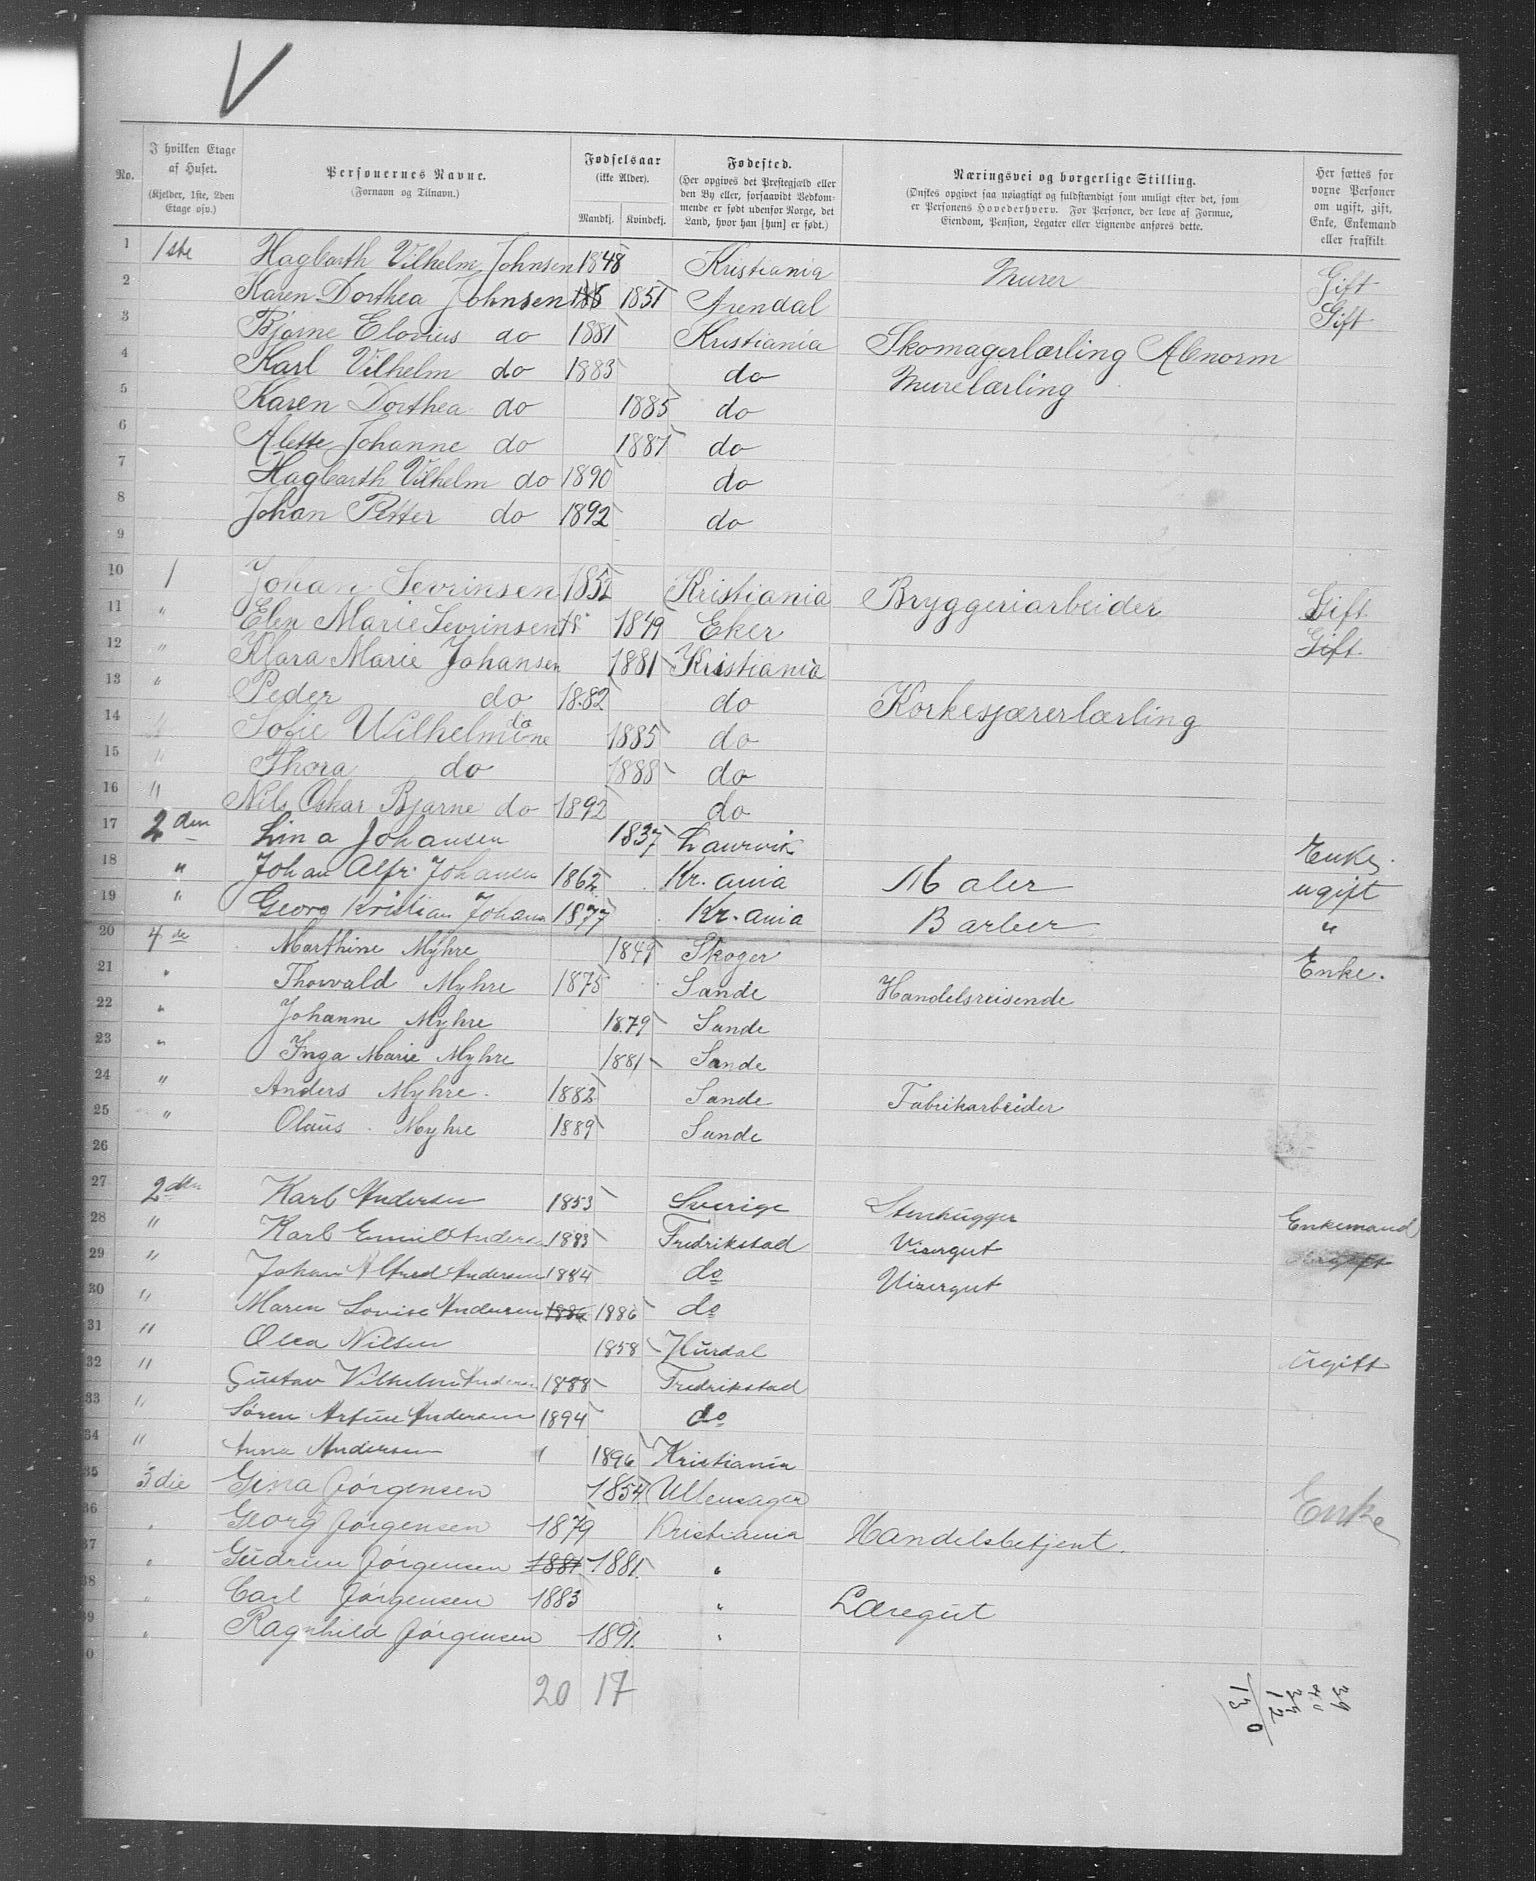 V
No.
I hvilken Etage af Huset. (Kjelder, 1ste, 2den Etage osv.)
Personernes Navne. (Fornavn og Tilnavn.)
Fødselsaar (ikke Alder). Mandkj. Kvindekj.
Fødested. (Her opgives det Prestegjæld eller den By eller, forsaavidt Vedkommende er født udenfor Norge, det Land, hvor han [hun] er født.)
Næringsvei og borgerlige Stilling. (Ønskes opgivet saa nøiagtigt og fuldstændigt som muligt efter det, som er Personens Hovederhverv. For Personer, der leve af Formue, Eiendom, Pension, Legater eller Lignende anføres dette.
Her sættes for voxne Personer om ugift, gift, Enke, Enkemand eller fraskilt.
1 1ste Hagbarth Vilhelm Johnsen 1848 Kristiania Murer Gift
2 Karen Dorthea Johnsen 185 1851 Arendal Gift
3 Bjarne Elovius do 1881 Kristiania Skomagerlærling Abnorm
4 Karl Vilhelm do 1883 do Murelærling
5 Karen Dorthea do 1885 do
6 Alette Johanne do 1887 do
7 Hagbarth Vilhelm do 1890 do
8 Johan Petter do 1892 do
9
10 1 Johan Sevrinsen 1852 Kristiania Bryggeriarbeider Gift
11 " Elen Marie Sevrinsen 18 1849 Eker Gift
12 " Klara Marie Johansen 1881 Kristiania
13 " Peder do 1882 do Korkesjærerlærling
14 " Sofie Wilhelmine do 1885 do
15 " Thora do 1888 do
16 " Nils Oskar Bjarne do 1892 do
17 2den Lina Johansen 1837 Laurvik Enke.
18 " Johan Alfr. Johansen 1862 Kr. ania Maler ugift
19 " Georg Kristian Johans 1877 Kr. ania Barber "
20 4de Marthine Myhre 1849 Skoger Enke.
21 " Thorvald Myhre 1875 Sande Handelsreisende
22 " Johanne Myhre 1879 Sande
23 " Inga Marie Myhre 1881 Sande
24 " Anders Myhre. 1882 Sande Fabrikarbeider
25 " Olaus Myhre 1889 Sande
26
27 2den Karl Andersen 1853 Sverige Stenhugger Enkemand
28 " Karl Emil Anders 1883 Fredrikstad Visergut
29 " Johan Alfred Andersen 1884 do Visergut
30 " Maren Lovise Andersen 1886 1886 do
31 " Olea Nilsen 1858 Hurdal Ugift
32 " Gustav Vilhelm Anders 1888 Fredrikstad
33 " Søren Artur Andersen 1894 do
34 " Anna Andersen 1896 Kristiania
35 3die Gina Jørgensen 1854 Ullensager Enke
36 " Georg Jørgensen 1879 Kristiania Handelsbetjent.
37 " Gudrun Jørgensen 1881 1881. "
38 " Carl Jørgensen 1883 " Læregut
39 " Ragnhild Jørgensen 1891. "
0
20 17
39
40
39
12
130